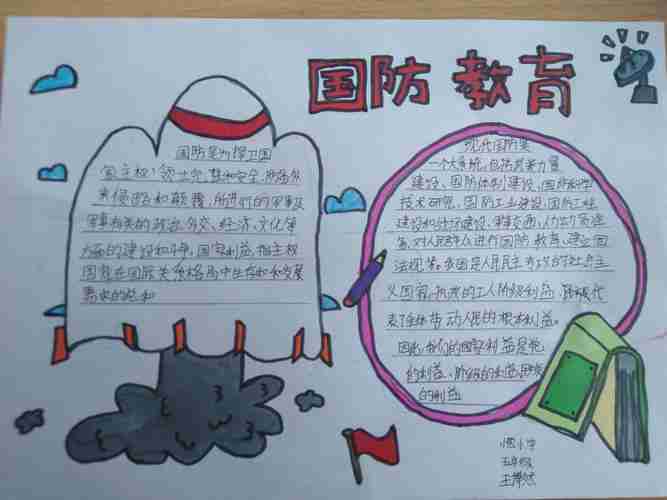 国防教育
国防是为捍卫国
家主权、领土完整和安全，防备外
来侵略和颠覆，所进行的军事及
军事相关的政治、外交、经济、文化等
方面的建设和斗争。国家利益，指主权
国家在国际关系格局中生存和和发展
需求的总和
现代国防是
一个大系统，包括武装力量
建设、国防体制建设、国防科学
技术研究、国防工业建设、国防工程
建设和战场建设、军事交通、人力动员准
备、对人民群众进行国防教育、建立国
法规等。我国是人民民主专政的社会主
义国家，执政的工人阶级利益
表了全体劳动人民的根本利益。
因此，我们的国家利益是
的利益、阶级的利益
的利益
小学
五年级
王